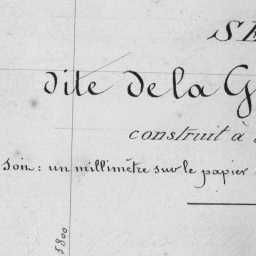 SE
dite de la G
construit à
soin : un millimètre sur le papier
5800